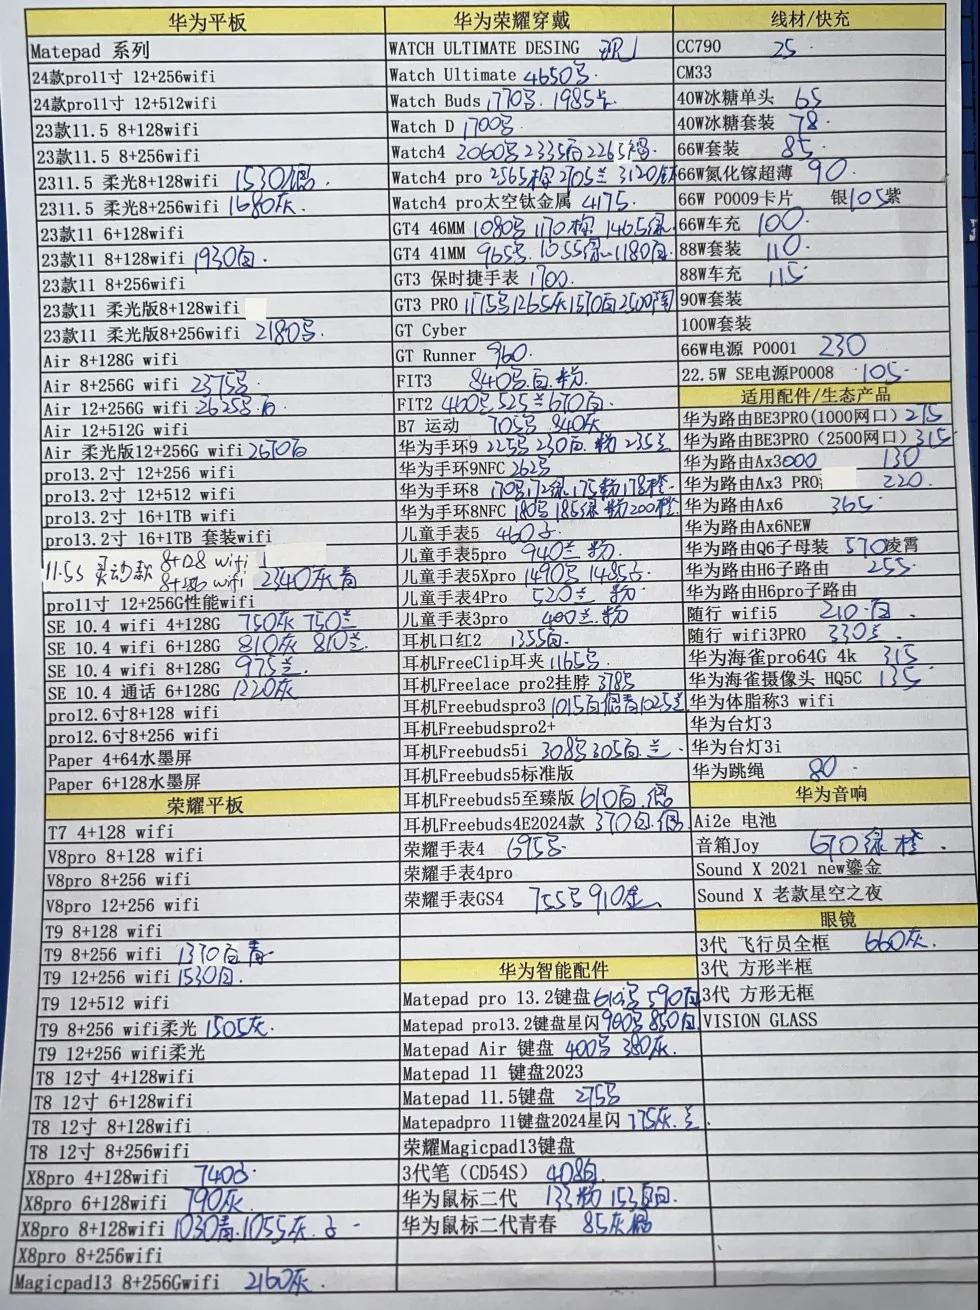 华为平板
Matepad 系列
24款pro11寸 12+256wifi
24款pro11寸 12+512wifi
23款11.5 8+128wifi
23款11.5 8+256wifi
2311.5 柔光8+128wifi 1530
2311.5 柔光8+256wifi 1680灰
23款11 6+128wifi
23款11 8+128wifi 1930白
23款11 8+256wifi
23款11 柔光版8+128wifi
23款11 柔光版8+256wifi 2180
Air 8+128G wifi
Air 8+256G wifi 2375
Air 12+256G wifi 2625 白
Air 12+512G wifi
Air 柔光版12+256G wifi 2670白
pro13.2寸 12+256 wifi
pro13.2寸 12+512 wifi
pro13.2寸 16+1TB wifi
pro13.2寸 16+1TB 套装wifi
11.5S 灵动款 8+128 wifi
8+256 wifi 2340灰青
pro11寸 12+256G性能wifi
SE 10.4 wifi 4+128G 750灰 750兰
SE 10.4 wifi 6+128G 810灰 810兰
SE 10.4 wifi 8+128G 975兰
SE 10.4 通话 6+128G 1220灰
pro12.6寸8+128 wifi
pro12.6寸8+256 wifi
Paper 4+64水墨屏
Paper 6+128水墨屏
荣耀平板
T7 4+128 wifi
V8pro 8+128 wifi
V8pro 8+256 wifi
V8pro 12+256 wifi
T9 8+128 wifi
T9 8+256 wifi 1370白 青
T9 12+256 wifi 1530白
T9 12+512 wifi
T9 8+256 wifi柔光 1505灰
T9 12+256 wifi柔光
T8 12寸 4+128wifi
T8 12寸 6+128wifi
T8 12寸 8+128wifi
T8 12寸 8+256wifi
X8pro 4+128wifi 740
X8pro 6+128wifi 790灰
X8pro 8+128wifi 1030青 1055灰
X8pro 8+256wifi
Magicpad13 8+256Gwifi 2160灰
华为荣耀穿戴
WATCH ULTIMATE DESING
Watch Ultimate 4650
Watch Buds 1770 1985
Watch D 1700
Watch4 2060 2335 2265
Watch4 pro 2565 2705兰 3120
Watch4 pro太空钛金属 4175
GT4 46MM 1080 1170棕 1465绿
GT4 41MM 965 1055绿 1180白
GT3 保时捷手表 1700
GT3 PRO 1175 1265灰1570白2500陶
GT Cyber
GT Runner 960
FIT3 840 白 粉
FIT2 460 525兰670白
B7 运动 705 840灰
华为手环9 225 230白 粉 235兰
华为手环9NFC 262
华为手环8 170 172绿 175粉178橙
华为手环8NFC 180 185绿 粉200橙
儿童手表5 460
儿童手表5pro 940兰 粉
儿童手表5Xpro 1490 1485
儿童手表4Pro 520兰 粉
儿童手表3pro 400兰 粉
耳机口红2 1355
耳机FreeClip耳夹 1165
耳机Freelace pro2挂脖 378
耳机Freebudspro3 1015白 青1025兰
耳机Freebudspro2+
耳机Freebuds5i 308 305白 兰
耳机Freebuds5标准版
耳机Freebuds5至臻版 610白
耳机Freebuds4E2024款 370白
荣耀手表4 695
荣耀手表4pro
荣耀手表GS4 755 910金
华为智能配件
Matepad pro 13.2键盘 610 590白
Matepad pro13.2键盘星闪 960 850白
Matepad Air 键盘 400 380灰
Matepad 11 键盘2023
Matepad 11.5键盘 275
Matepadpro 11键盘2024星闪 775灰 兰
荣耀Magicpad13键盘
3代笔（CD54S） 408白
华为鼠标二代 133粉 153
华为鼠标二代青春 85灰
线材/快充
CC790 25
CM33
40W冰糖单头 65
40W冰糖套装 78
66W套装 85
66W氮化镓超薄 90
66W P0009卡片 银105紫
66W车充 100
88W套装 110
88W车充 115
90W套装
100W套装
66W电源 P0001 230
22.5W SE电源P0008 105
适用配件/生态产品
华为路由BE3PRO(1000网口) 275
华为路由BE3PRO（2500网口) 315
华为路由Ax3000 130
华为路由Ax3 PRO 220
华为路由Ax6 365
华为路由Ax6NEW
华为路由Q6子母装 570凌霄
华为路由H6子路由 255
华为路由H6pro子路由
随行 wifi5 210 白
随行 wifi3PRO 330兰
华为海雀pro64G 4k 315
华为海雀摄像头 HQ5C 135
华为体脂称3 wifi
华为台灯3
华为台灯3i
华为跳绳 80
华为音响
Ai2e 电池
音箱Joy 670绿 橙
Sound X 2021 new鎏金
Sound X 老款星空之夜
眼镜
3代 飞行员全框 660灰
3代 方形半框
3代 方形无框
VISION GLASS